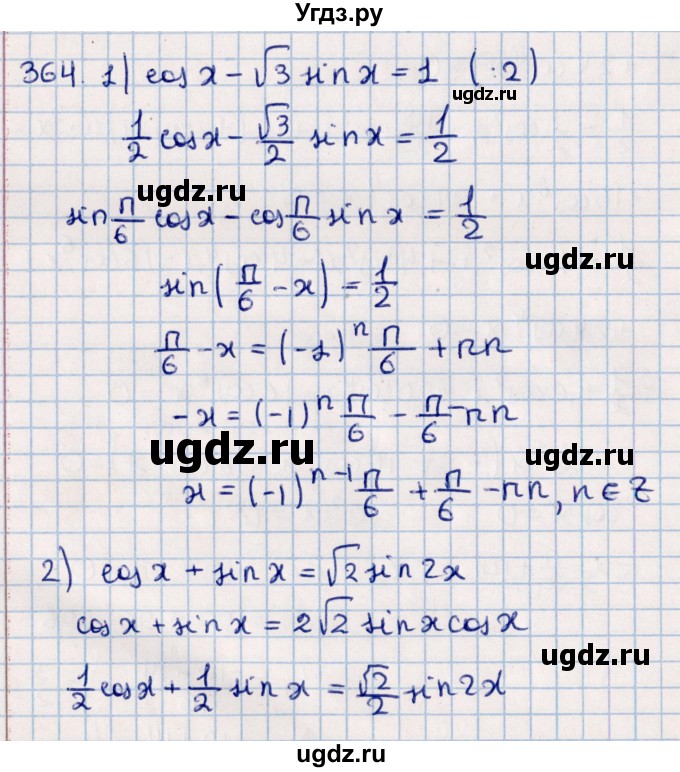 Угдз.ру
364. 1) cos x - √3 sin x = 1 (:2)
ugdz.ru
1/2 cos x - √3/2 sin x = 1/2
ugdz.ru ugdz.ru
sin π/6 cos x - cos π/6 sin x = 1/2
ugdz.ru
sin(π/6 - x) = 1/2
π/6 - x = (-1)^n π/6 + πn
-x = (-1)^n π/6 - π/6 - πn
ugdz.ru ugdz.ru
x = (-1)^(n-1) π/6 + π/6 - πn, n ∈ Z
2) cos x + sin x = √2 sin 2x
cos x + sin x = 2√2 sin x cos x
ugdz.ru
1/2 cos x + 1/2 sin x = √2/2 sin 2x
ugdz.ru
ugdz.ru